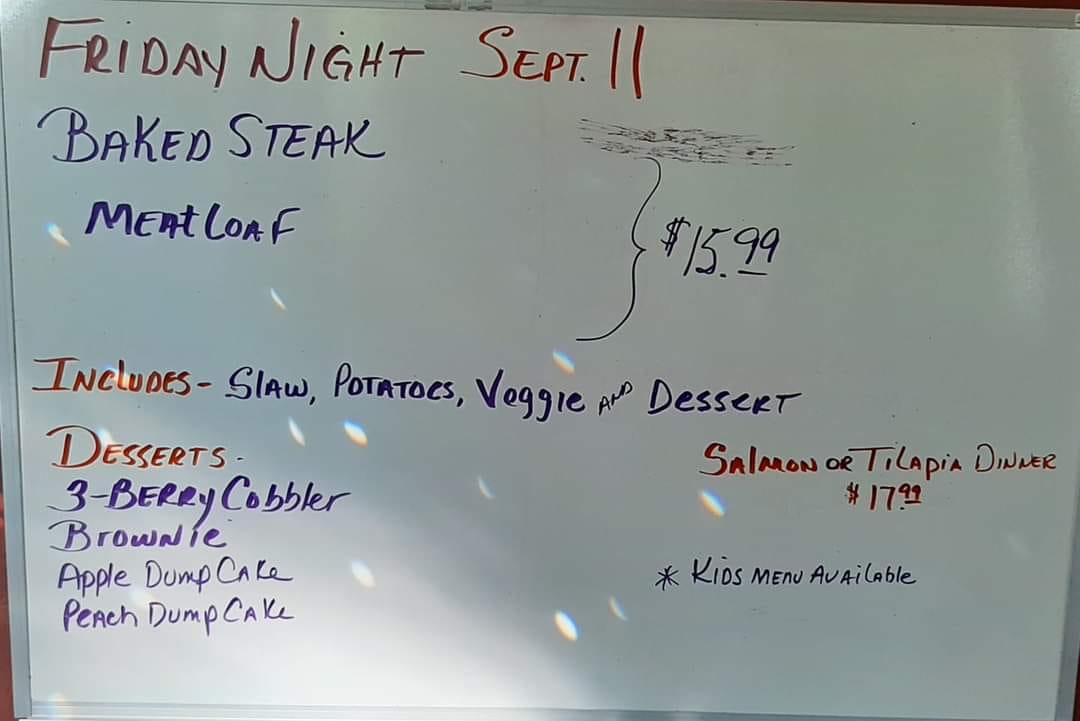 FRIDAY NIGHT SEPT. 11
BAKED STEAK
MEATLOAF
$15.99
INCLUDES - SLAW, POTATOES, Veggie AND DESSERT
DESSERTS -
3-BERRY Cobbler
BROWNIE
Apple Dump CAKE
PEACH Dump CAKE
SALMON OR TILAPIA DINNER
$17.99
* KIDS MENU AVAILABLE